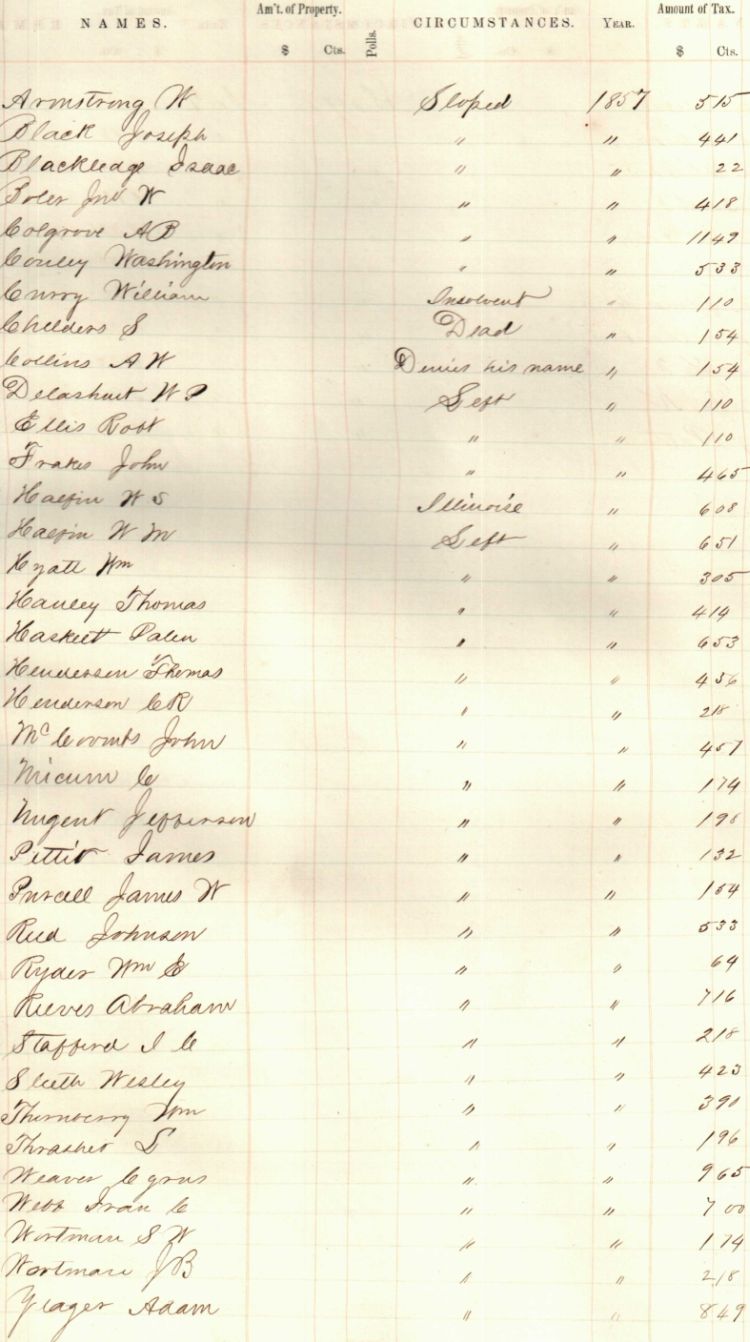 NAMES. Am't. of Property. Polls. CIRCUMSTANCES. YEAR. Amount of Tax.
$ Cts. $ Cts.
Armstrong W Sloped 1857 5 15
Black Joseph " " 4 41
Blackledge Isaac " " 22
Boler Jno W " " 4 18
Colgrove A B " " 11 49
Conley Washington " " 5 33
Curry William Insolvent " 1 10
Childers S Dead " 1 54
Collins A W Denies his name " 1 54
Delashut W P Left " 1 10
Ellis Robt " " 1 10
Frakes John " " 4 65
Halfin W S Illinoise " 6 08
Halfin W M Left " 6 51
Hyatt Wm " " 3 05
Hanley Thomas " " 4 14
Haskett Palen " " 6 53
Henderson Thomas " " 4 36
Henderson C R " " 2 18
McCoombs John " " 4 57
Micum C " " 1 74
Nugent Jefferson " " 1 96
Pettit James " " 1 32
Purcell James W " " 1 54
Reed Johnson " " 5 33
Ryder Wm E " " 64
Reeves Abraham " " 7 16
Stafford I C " " 2 18
Sleeth Wesley " " 4 23
Thornberry Wm " " 3 90
Thrasher S " " 1 96
Weaver Cyrus " " 9 65
Webb Ivan C " " 7 00
Wortman S W " " 1 74
Wortman J B " " 2 18
Yeager Adam " " 8 49